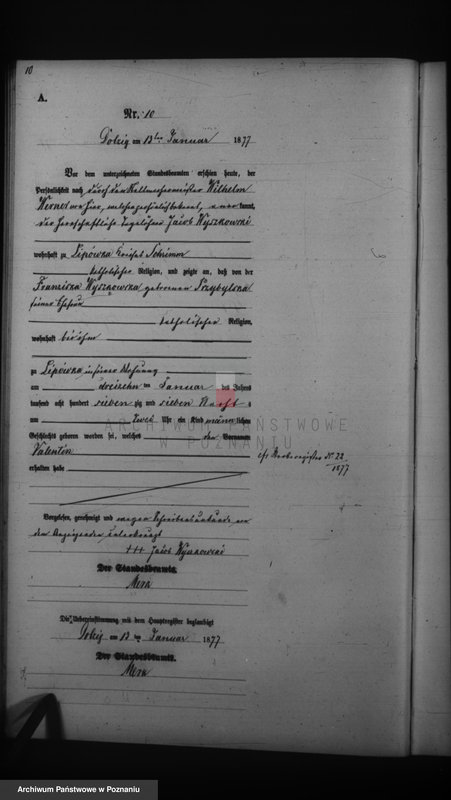 10
A.
Nr. 10
Dolzig am 13ten Januar 1877
Vor dem unterzeichneten Standesbeamten erschien heute, der
Persönlichkeit nach durch den Wilhelm
Werner von hier, kannt,
der herrschaftliche Tagelöhner Jacob Wyszkowski
wohnhaft zu Lipówka Kreises Schrimm
katholischer Religion, und zeigte an, daß von der
Franziska Wyszkowska geborenen Przybylska
seiner Ehefrau
katholischer Religion,
wohnhaft bei ihm
zu Lipówka in seiner Wohnung
am dreizehn ten Januar des Jahres
tausend acht hundert sieben zig und sieben Nachts
um zwei Uhr ein Kind männlichen
Geschlechts geboren worden sei, welches den Vornamen
Valentin
erhalten habe
cfr. Sterberegister N° 22
1877
ARCHIWUM PAŃSTWOWE
W POZNANIU
Vorgelesen, genehmigt und wegen Schreibensunkunde von
dem Anzeigenden unterkreuzt
+++ Jacob Wyszkowski
Der Standesbeamte.
Die Uebereinstimmung mit dem Hauptregister beglaubigt
Dolzig am 13 ten Januar 1877
Der Standesbeamte.
Archiwum Państwowe w Poznaniu